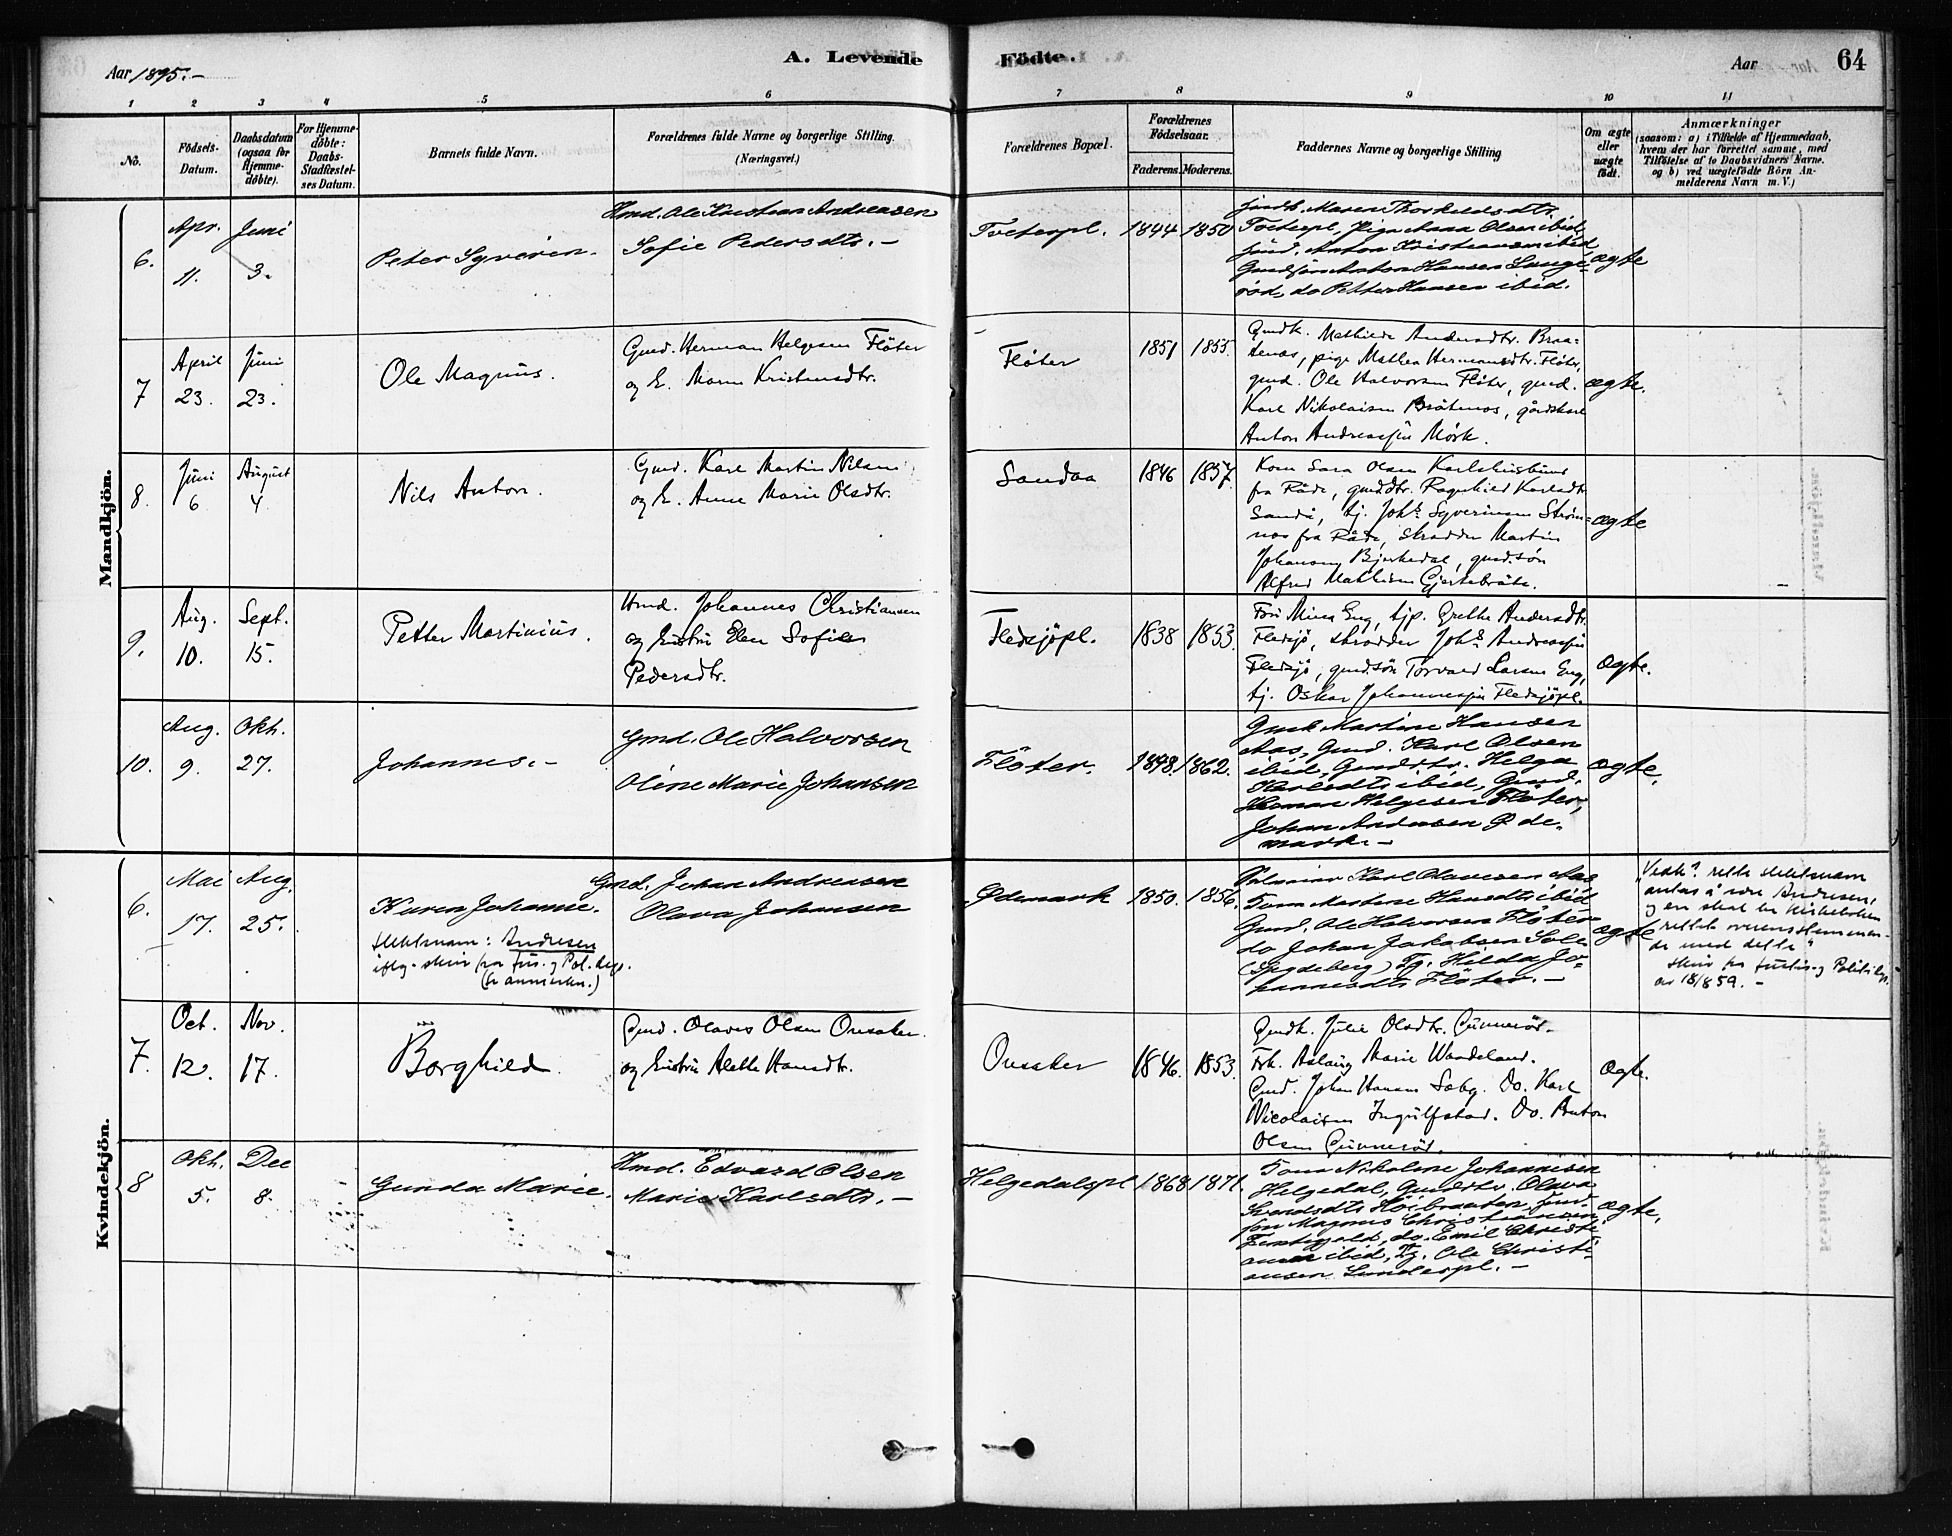 Aar 1895.-
A. Levende
Födte.
Aar
64
1
2
3
4
5
6
7
8
9
10
11
No.
Födsels-
Datum.
Daabsdatum
(ogsaa för
Hjemme-
döbte).
For Hjemme-
döbte:
Daabs-
Stadfæstel-
ses Datum.
Barnets fulde Navn.
Forældrenes fulde Navne og borgerlige Stilling.
(Næringsvei.)
Forældrenes Bopæl.
Forældrenes
Födselsaar.
Faderens.
Moderens.
Faddernes Navne og borgerlige Stilling
Om ægte
eller
uægte
födt.
Anmærkninger
(saasom: a) i Tilfælde af Hjemmedaab,
hvem der har forrettet samme, med
Tilföielse af to Daabsvidners Navne.
og b) ved uægtefödte Börn An-
melderens Navn m. V.)
Mandkjön.
6.
Apr.
11.
Juni
3.
Peter Syverin.
Hmd. Ole Kristian Andreasen
Sofie Pedersdtr. -
Tveterpl.
1844
1850
Maren Thorkeldsdtr.
Tveterpl, Pige Anna Olsen ibid,
Anton Kristiansen ibid
Gaardsøn Anton Hansen Lange-
rød, do Petter Hansen ibid.
ægte
7
April
23.
Juni
23.
Ole Magnus.
Gmd. Herman Helgesen Fløter
og H. Maren Kristensdtr.
Fløter
1851
1855.
Gmdk. Mathilde Andersdtr. Braa-
tenas, pige Mathea Hermansdtr. Fløter,
gmd. Ole Halvorsen Fløter, gmd.
Karl Nikolaisen Bråtenas, gårdskarl
Anton Andreassen Mørk.
ægte.
8.
Juni
6
August
4.
Nils Anton.
Gmd. Karl Martin Nilsen
og H. Anne Marie Olsdtr.
Sandaa
1846
1857.
Kone Sara Olsen Karlshusbund
fra Råde, gmddtr. Ragnhild Karlsdtr
Sandå, tj. Johs Syverinsen Strøm-
nes fra Råde, skrædder Martin
Johansen Bjerkedal, gmdsøn
Alfred Mathisen Gjerkebråte.
ægte
9.
Aug.
10.
Sept.
15.
Petter Martinius.
Hmd. Johannes Christiansen
og Hustru Elen Sofie
Pedersdtr.
Fledsjöpl.
1838
1853.
Fru Mina Eng, tjp. Grethe Andersdtr.
Fledsjø, skrædder Johs Andreassen
Fledsjø, gmdsøn Torvald Larsen Eng,
tj. Oskar Johannessen Fledsjøpl.
ægte.
10.
Aug.
9.
Okt.
27.
Johannes. -
Gmd. Ole Halvorsen
Oline Marie Johansen
Fløter.
1848.
1862.
Gmk Martine Hansen
Aas, Gmd. Karl Olsen
ibid, Gmddtr. Helga
Karlsdtr ibid, Gmd.
Herman Helgesen Fløter,
Johan Andersen Øde-
mark. -
ægte.
Kvindekjön.
6.
Mai
17.
Aug.
25.
Karen Johanne.
Slektsnavn: Andresen
iflg. skriv fra Jus. og Pol. dep.
(se anmerkn.)
Gmd. Johan Andresen
Olava Johansen
Ødemark
1850.
1856.
Karl Olavesen Aas
Kone Martine Hansdtr ibid
Gmd. Ole Halvorsen Fløter
do Johan Jakobsen
(Spydeberg) Tj. Hilda Jo-
hannesdtr Fløter. -
ægte
"Vedk? rette slektsnavn
antas å være Andresen,
og en skal be kirkeboken
rettet overensstemmen-
de med dette"
skriv fra Justis- og Politidep.
av 18/8 59. -
7.
Oct.
12.
Nov.
17.
Borghild
Gmd. Olaves Olsen Onsaker.
og Hustru Alette Hansdtr.
Onsaker
1846.
1853.
Gmdk. Julie Olsdtr. Gunnerød.
Frk. Aslaug Marie Wandeland.
Gmd. Johan Hansen Solog. Do. Karl
Nicolaisen Ingulfstad. Do. Anton
Olsen Gunnerød.
ægte.
8
Okt.
5.
Dec
8.
Gunda Marie.
Hmd. Edvard Olsen
Marie Karlsdtr. -
Helgedalspl
1868
1871.
Kone Nikoline Johannesen
Helgedal, Gmddtr. Olava
Svendsdtr Høibraaten,
søn Magnus Christiansen
do. Emil Christi-
ansen ibid, Tj. Ole Christi-
ansen Lunderpl. -
ægte.